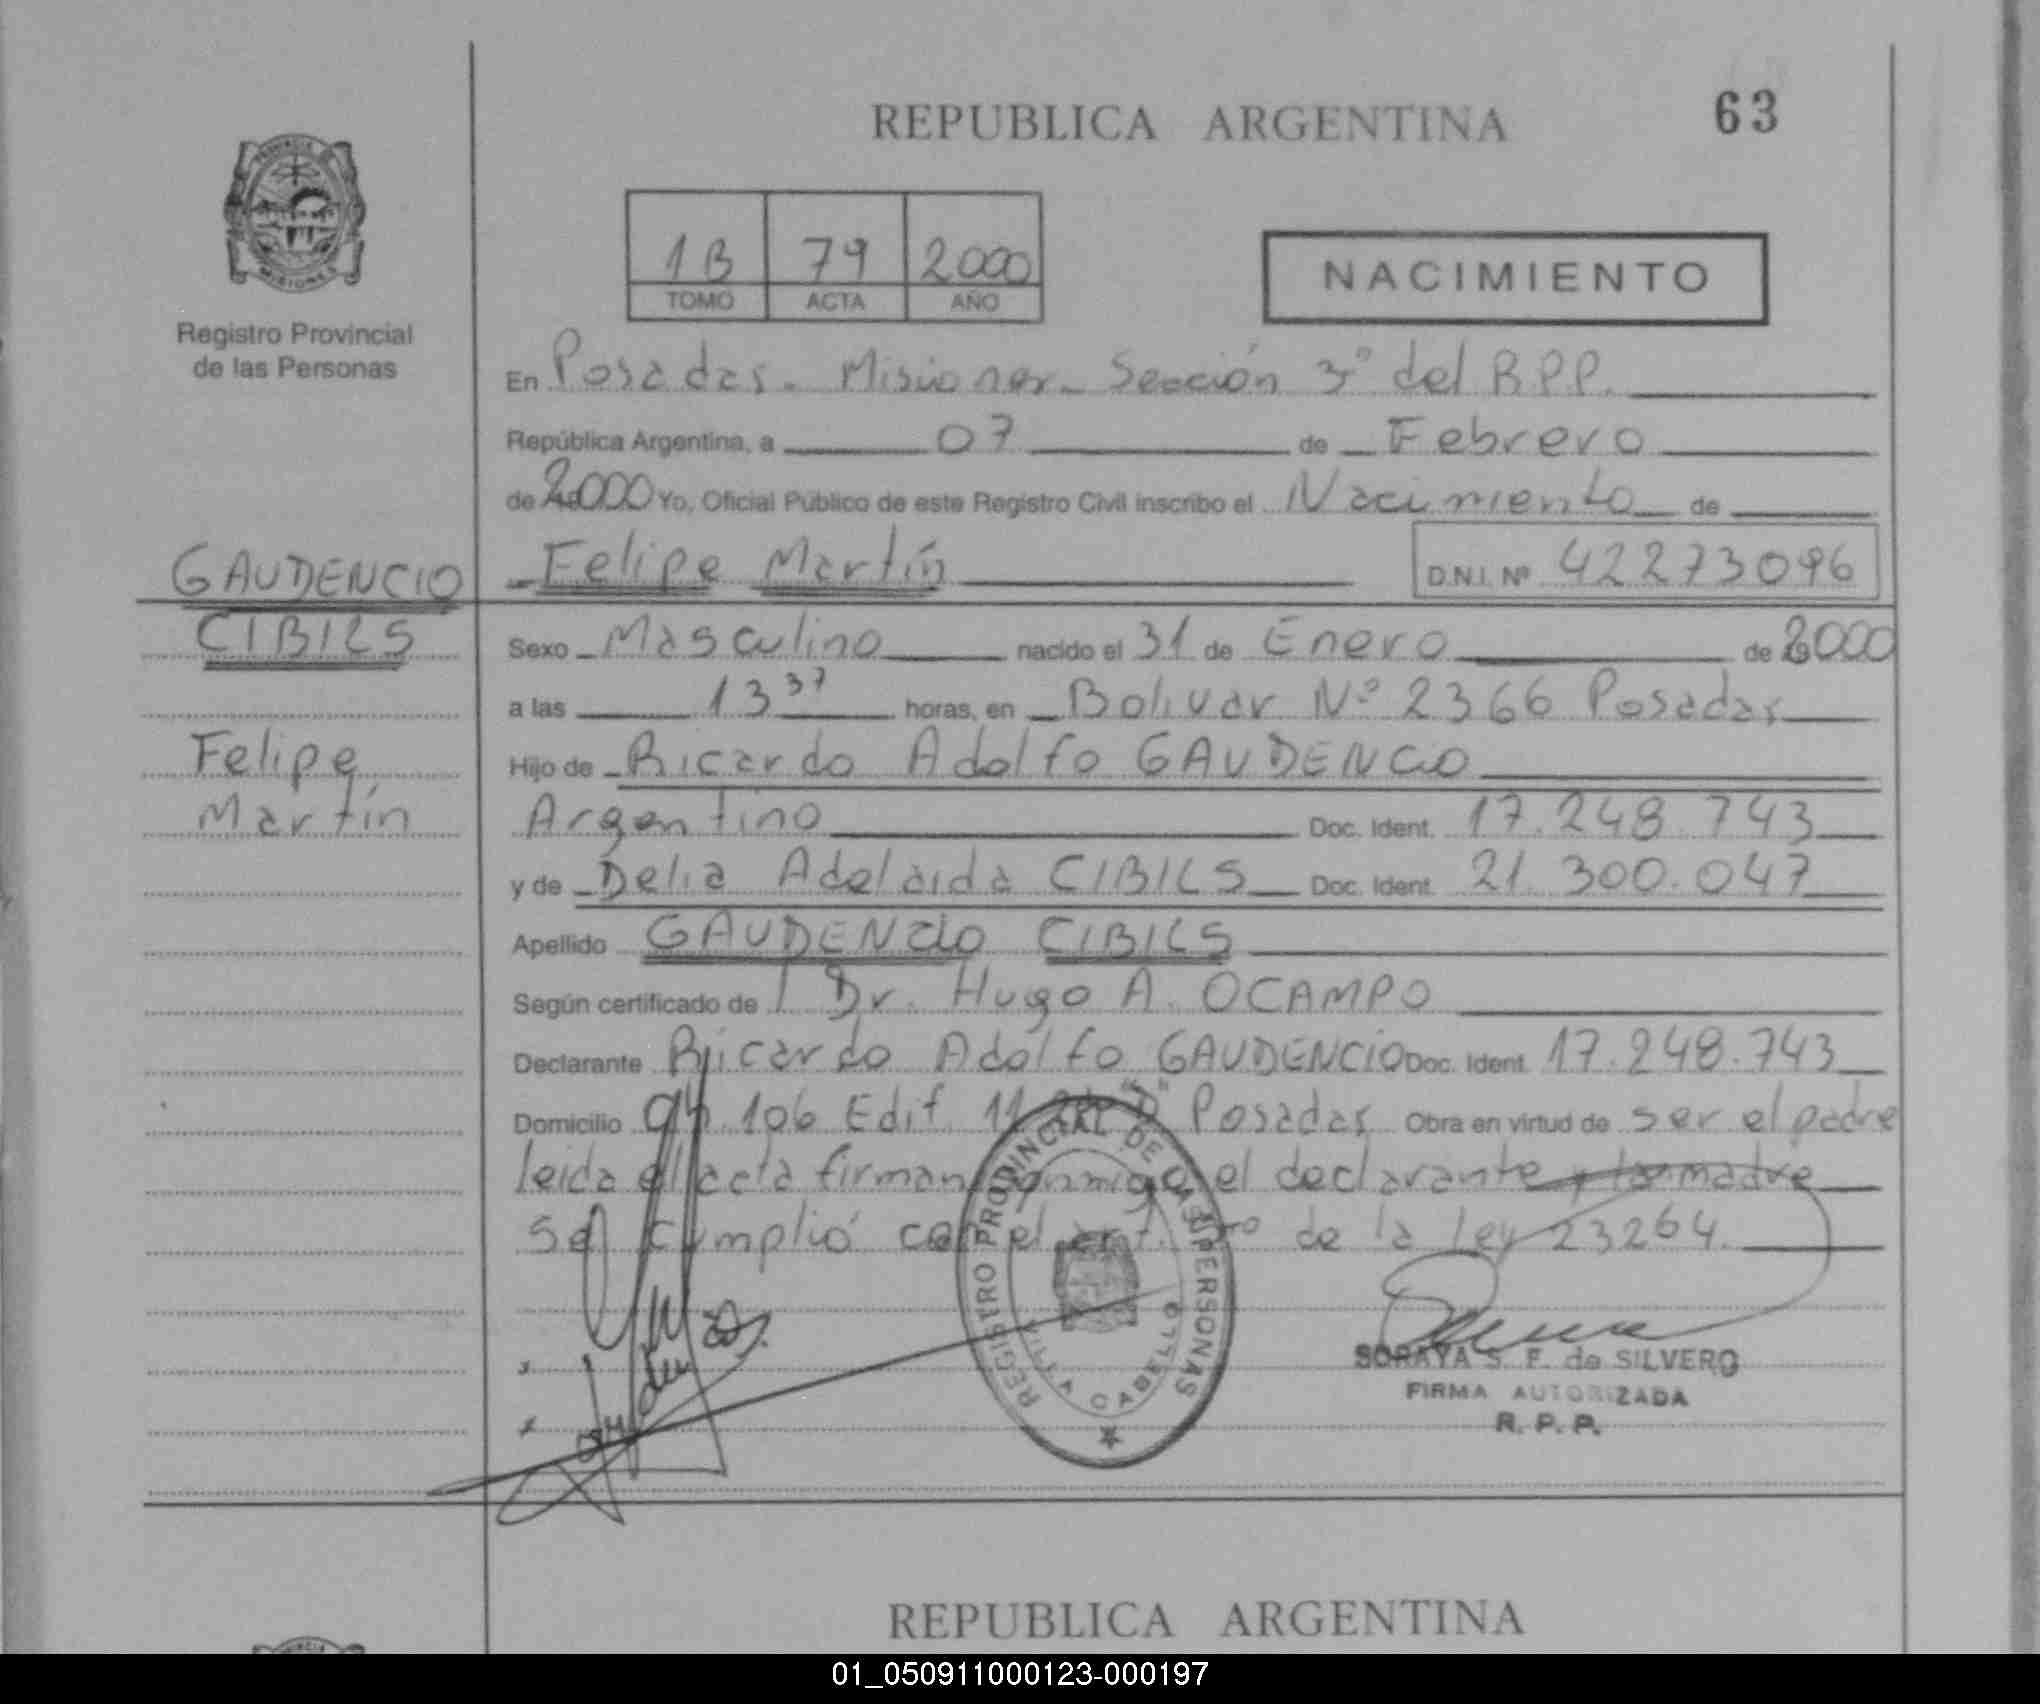 REPUBLICA ARGENTINA
63
PROVINCIA DE
MISIONES
Registro Provincial
de las Personas
1B 79 2000
TOMO ACTA AÑO
NACIMIENTO
En Posadas. Misiones. Sección 3º del R.P.P.
República Argentina, a 07 de Febrero
de 2000 Yo, Oficial Público de este Registro Civil inscribo el Nacimiento de
GAUDENCIO Felipe Martín D.N.I. Nº 42273096
CIBILS Sexo Masculino nacido el 31 de Enero de 2000
a las 13 37 horas, en Bolivar Nº 2366 Posadas
Felipe Hijo de Ricardo Adolfo GAUDENCIO
Martín Argentino Doc. Ident. 17.248.743
y de Delia Adelaida CIBILS Doc. Ident. 21.300.047
Apellido GAUDENCIO CIBILS
Según certificado de Dr. Hugo A. OCAMPO
Declarante Ricardo Adolfo GAUDENCIO Doc. Ident. 17.248.743
Domicilio Ch. 106 Edif. 11 "D" Posadas Obra en virtud de ser el padre
leida el acta firman conmigo el declarante y la madre
Se cumplió con el art. de la ley 23264.
REGISTRO PROVINCIAL DE LAS PERSONAS
VILLA CABELLO
SORAYA S. F. de SILVERO
FIRMA AUTORIZADA
R. P. P.
REPUBLICA ARGENTINA
01_050911000123-000197